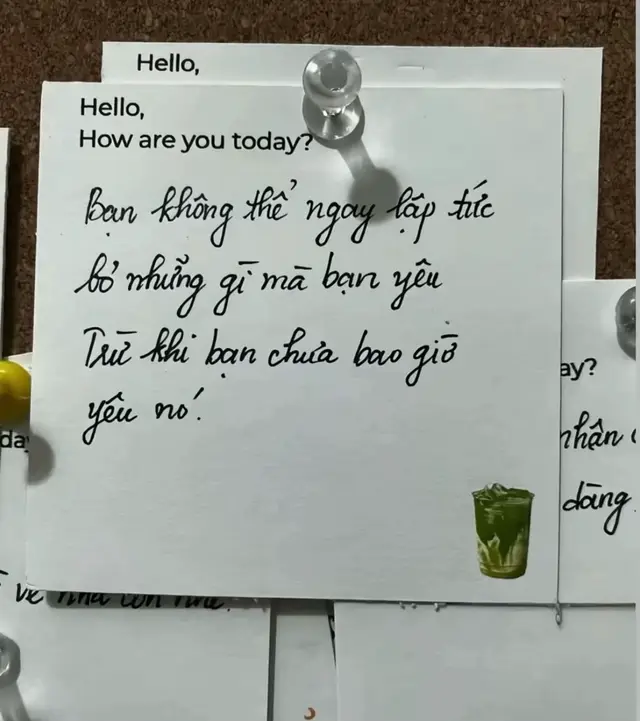 Hello,
Hello,
How are you today?
Bạn không thể ngay lập tức
bỏ những gì mà bạn yêu
Trừ khi bạn chưa bao giờ
yêu nó.
ay?
nhận
dàng
da
về nhà còn nhé.